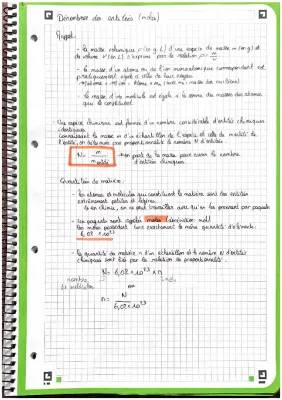 Dénombrer des entités (moles)
Rappel:
- La masse volumique ρ (en g/L) d'une espèce de masse m (en g) et
de volume V (en L) s'exprime par la relation ρ = m/V
- la masse d'un atome ou de l'ion monoatomique correspondant est
pratiquement égale à celle de leur noyau
- la masse d'une molécule est égale à la somme des masses des atomes
qui la constituent
Une espèce chimique est formée d'un nombre considérable d'entités chimiques
identiques.
Connaissant la masse m d'un échantillon de l'espèce et celle de m entité de
l'entité, on détermine par proportionnalité le nombre N d'entités
N = m / m entité → on part de la masse pour avoir le nombre
d'entités chimiques
Quantité de matière:
- les atomes et molécules qui constituent la matière sont des entités
extrêmement petites et légères
En chimie, on ne peut travailler avec qu'en les prenant par paquets
- ces paquets sont appelés moles (abréviation mol)
Une mole possède exactement la même quantité d'éléments:
6,02 × 10^23
- la quantité de matière n d'un échantillon et le nombre N d'entités
chimiques sont liés par la relation de proportionnalité:
N = 6,02 × 10^23 × n
nombre
de molécules
ou
n = N / 6,02 × 10^23